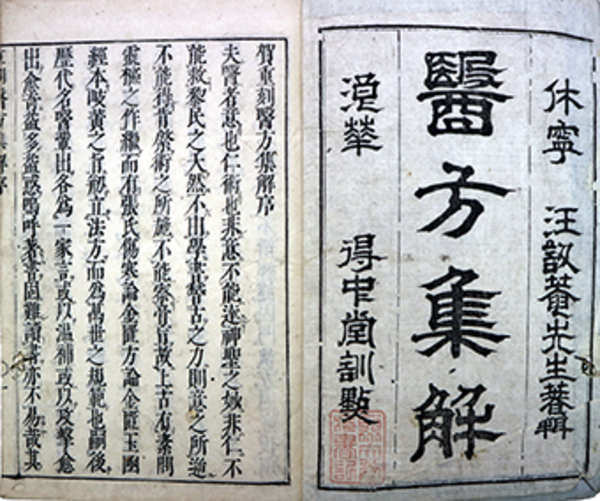 休寧 汪訒菴先生著輯
醫方集解
浪華 得中堂訓點
賀重刻醫方集解序
夫醫者意也仁術也非意不能逹神聖之域非仁不
能救黎民之夭然不由學書稽古之力則意之所適
不能得肯綮術之所施不能察膏肓故上古有素問
靈樞之作繼而有張氏傷寒論金匱方論金匱玉函
經本岐黃之旨刱立法方而為萬世之規範也嗣後
歷代名醫輩出各為一家言或以温補或以攻擊愈
出愈竒益多益惑嗚呼著書固難讀書亦不易哉其